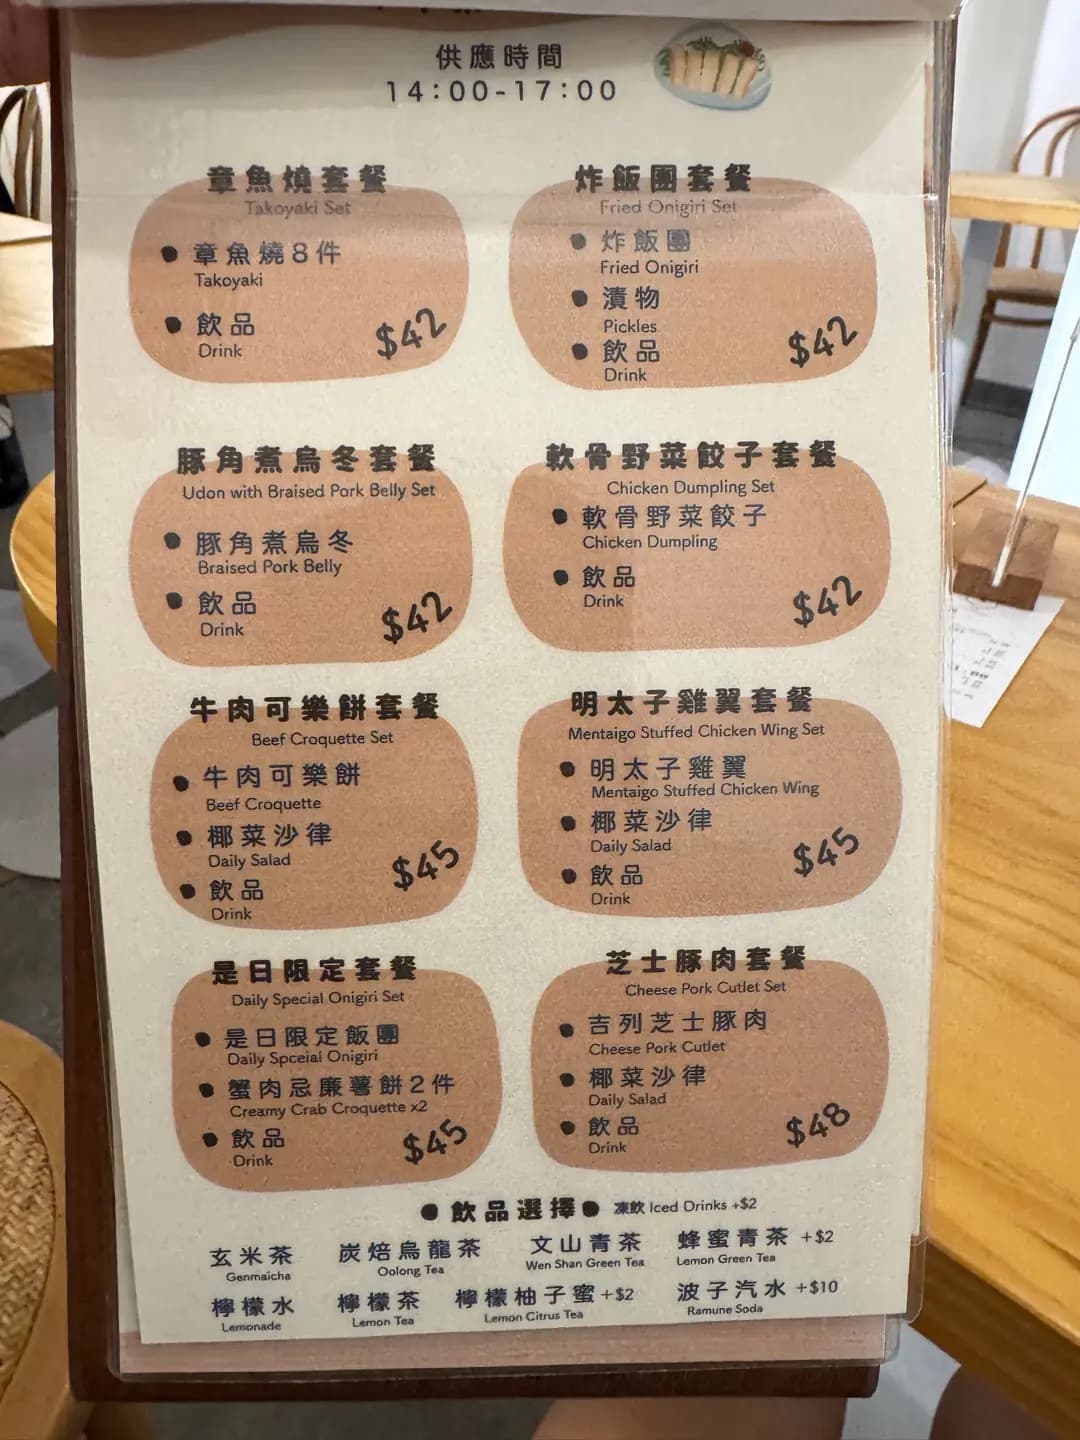 供應時間
14:00-17:00
章魚燒套餐
Takoyaki Set
章魚燒8件
Takoyaki
飲品
Drink
$42
炸飯團套餐
Fried Onigiri Set
炸飯團
Fried Onigiri
漬物
Pickles
飲品
Drink
$42
豚角煮烏冬套餐
Udon with Braised Pork Belly Set
豚角煮烏冬
Braised Pork Belly
飲品
Drink
$42
軟骨野菜餃子套餐
Chicken Dumpling Set
軟骨野菜餃子
Chicken Dumpling
飲品
Drink
$42
牛肉可樂餅套餐
Beef Croquette Set
牛肉可樂餅
Beef Croquette
椰菜沙律
Daily Salad
飲品
Drink
$45
明太子雞翼套餐
Mentaigo Stuffed Chicken Wing Set
明太子雞翼
Mentaigo Stuffed Chicken Wing
椰菜沙律
Daily Salad
飲品
Drink
$45
是日限定套餐
Daily Special Onigiri Set
是日限定飯團
Daily Spceial Onigiri
蟹肉忌廉薯餅2件
Creamy Crab Croquette x2
飲品
Drink
$45
芝士豚肉套餐
Cheese Pork Cutlet Set
吉列芝士豚肉
Cheese Pork Cutlet
椰菜沙律
Daily Salad
飲品
Drink
$48
飲品選擇 凍飲 Iced Drinks +$2
玄米茶 炭焙烏龍茶 文山青茶 蜂蜜青茶 +$2
Genmaicha Oolong Tea Wen Shan Green Tea Lemon Green Tea
檸檬水 檸檬茶 檸檬柚子蜜 +$2 波子汽水 +$10
Lemonade Lemon Tea Lemon Citrus Tea Ramune Soda